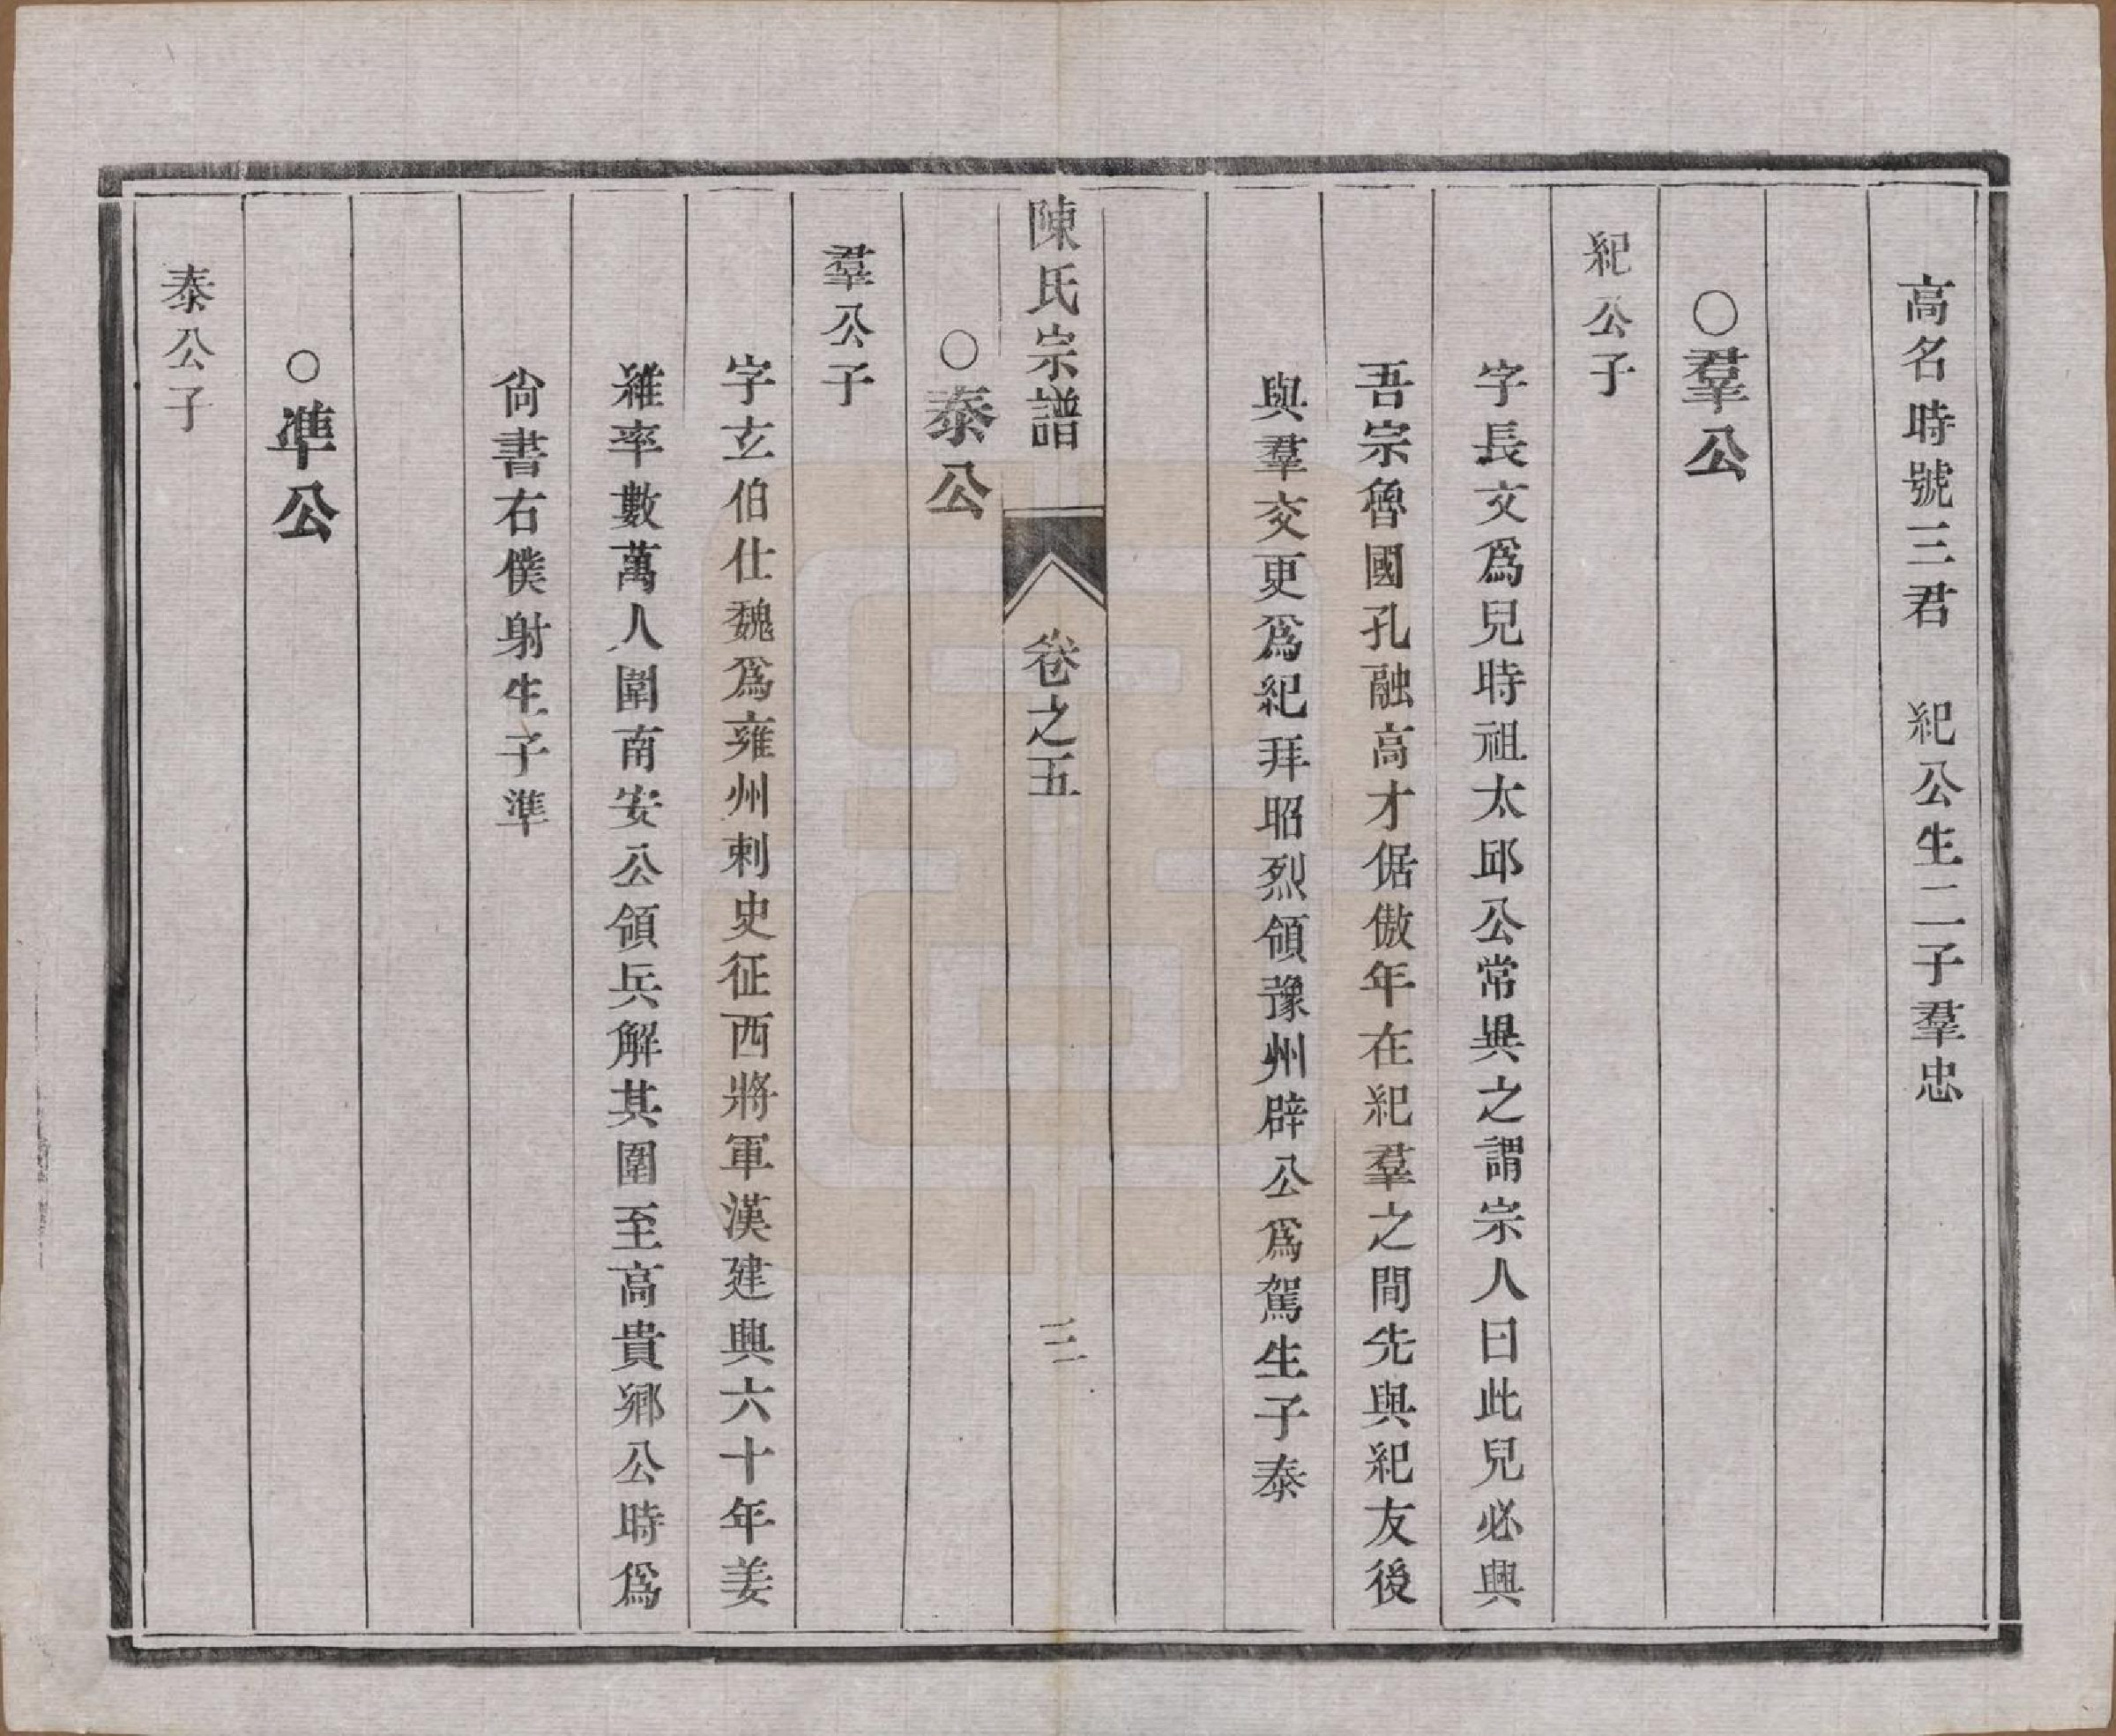 高名時號三君　紀公生二子羣忠
○羣公
紀公子
字長文爲兒時祖太邱公常異之謂宗人曰此兒必興
吾宗魯國孔融高才倨傲年在紀羣之間先與紀友後
與羣交更爲紀拜昭烈領豫州辟公爲駕生子泰
陳氏宗譜　卷之五　三
○泰公
羣公子
字玄伯仕魏爲雍州刺史征西將軍漢建興六十年姜
維率數萬人圍南安公領兵解其圍至高貴鄉公時爲
尙書右僕射生子準
○準公
泰公子